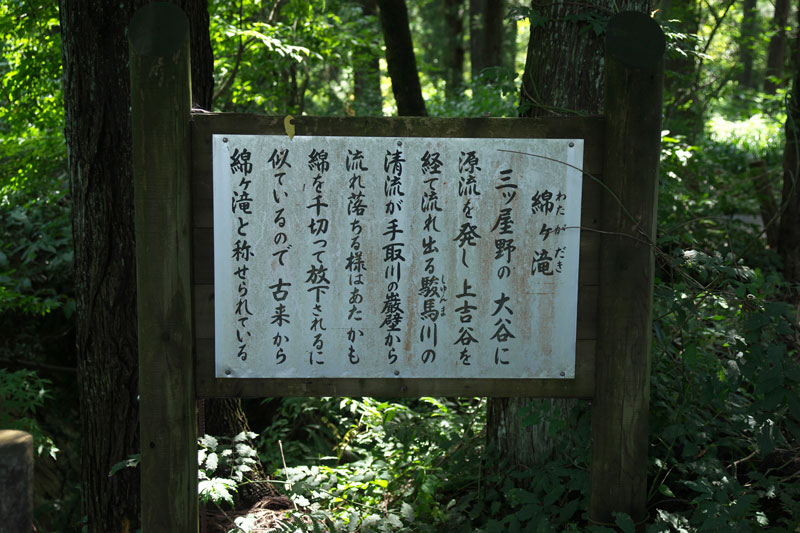 綿ヶ滝
わたがだき
三ツ屋野の 大谷に
源流を発し 上吉谷を
経て流れ出る駿馬川の
しゅんま
清流が手取川の巌壁から
流れ落ちる様はあたかも
綿を千切って放下されるに
似ているので 古来から
綿ヶ滝と称せられている